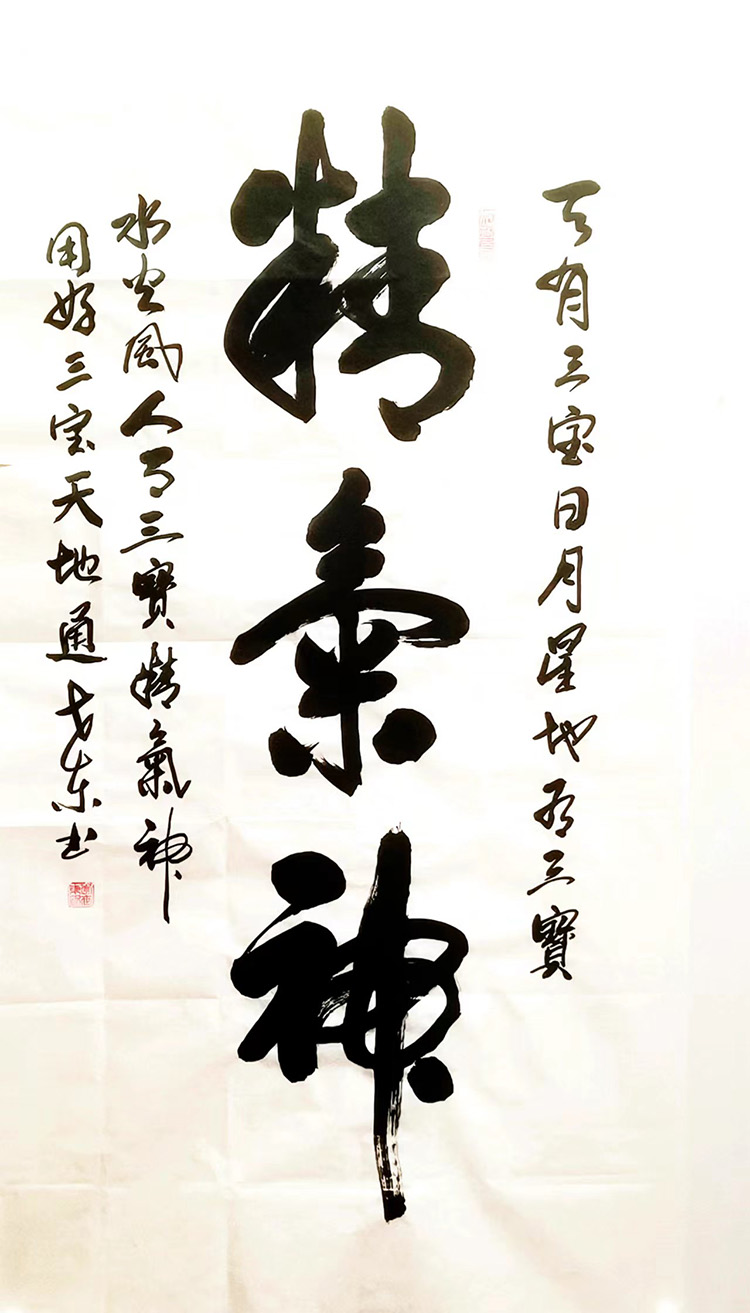 天有三宝日月星地有三寳
精氣神
水火風人有三寳精氣神
用好三宝天地通戈东书